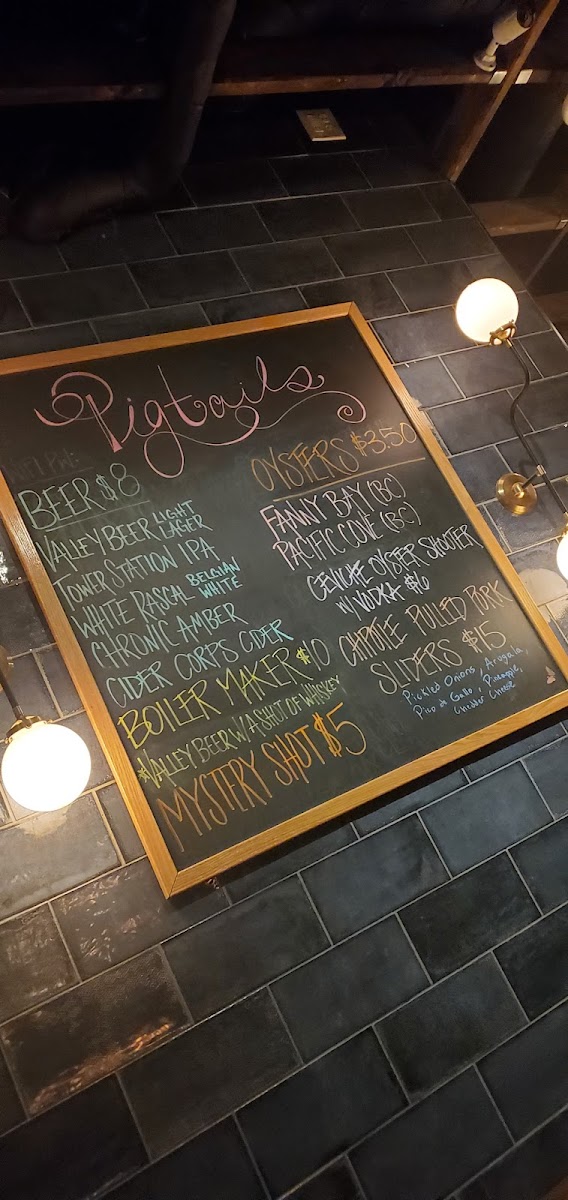 Pigtails
BEER $8
VALLEY BEER LIGHT LAGER
TOWER STATION IPA
WHITE RASCAL BELGIAN WHITE
CHRONIC AMBER
CIDER CORPS CIDER
BOILER MAKER $10
*VALLEY BEER W/ A SHOT OF WHISKEY
MYSTERY SHOT $5
OYSTERS $3.50
FANNY BAY (BC)
PACIFIC COVE (BC)
CEVICHE OYSTER SHOOTER
W/ VODKA $6
CHIPOTLE PULLED PORK
SLIDERS $15
Pickled Onions, Arugala,
Pico de Gallo, Pineapple,
Cheddar Cheese